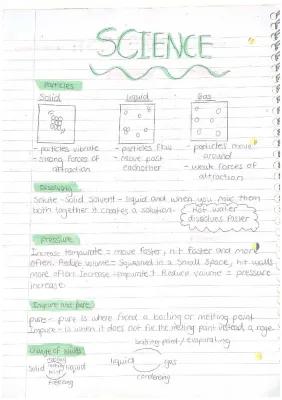 SCIENCE
Particles
Solid Liquid Gas
- particles vibrate
- strong forces of
attraction
- particles flow
- move past
eachother
- particles move
around
- weak forces of
attraction
Dissolving
Solute - Solid Solvent - liquid and when you mix them
both together it creates a solution.
Hot water
dissolves faster
Pressure
Increase = move faster, hit faster and more
often. Reduce volume = Squashed in a small space, hit walls
more often Increase Reduce volume = pressure
increase.
Impure and pure
pure - pure is where fixed a boiling or melting point
Impure - is when it does not fix the melting point instead, a
Change of states
boiling point / evaporating
Solid liquid
freezing
liquid gas
condensing